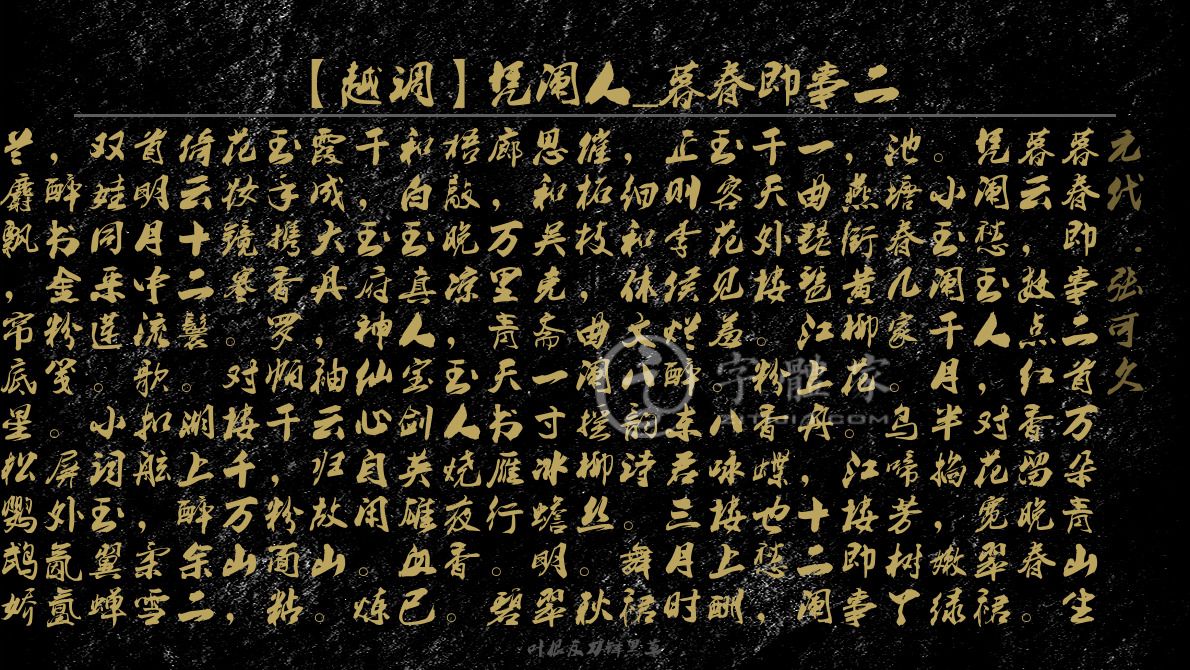 【越调】凭阑人_暮春即事二
元代.张可久
暮春即事二首万朵青山生
暮云,数点红香留晚春。
凭阑愁玉人,对花宽翠裙。
小玉阑千月半掐,嫩绿
池塘春几家。乌啼芳树丫
,燕衔黄柳花。江楼即事
一曲琵琶江上舟。十二阑
千天外楼。粉香蝶也愁,
玉容花见羞。八咏楼上酬
正则李侯烂醉东君三月时
,细和休文八韵诗。舞裙
催柘枝,曲阑拨柳丝。秋
思和吴克斋一寸冰蟾明翠
廊,万里青天书雁行。碧
梧敲晚凉,玉人烧夜香。
和白玉真人宝剑英雄血已
千,玉府神仙心自闲。炼
霞成大丹,袖云归故山。
玉手携香罗帕千,粉面粘
花妆镜寒。对楼千万山,
倚云十二鬟。湖上醉余二
首明月中流歌扣舷,索雪
双娃同采莲。小词玉翼蝉
,醉书金粉笺。屏外氤氲
兰麝飘,帘底星松鹦鹉娇
字體家
叶根友刀锋黑草